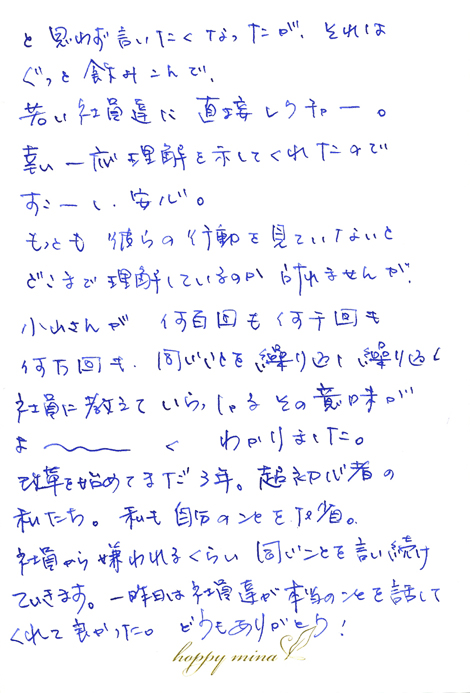 と思わず言いたくなったが、それは
ぐっと飲みこんで、
若い社員達に直接レクチャー。
幸い一応理解を示してくれたので
すこーし、安心。
もっとも彼らの行動を見ていないと
どこまで理解しているのか計れませんが、
小山さんが何百回も何千回も
何万回も、同じことを繰り返し繰り返し
社員に教えていらっしゃるその意味が
よ〜〜〜くわかりました。
改革を始めてまだ3年。超初心者の
私たち。私も自分のことを反省。
社員から嫌われるくらい同じことを言い続け
ていきます。一昨日は社員達が本当のことを話して
くれて良かった。どうもありがとう!
happy mina